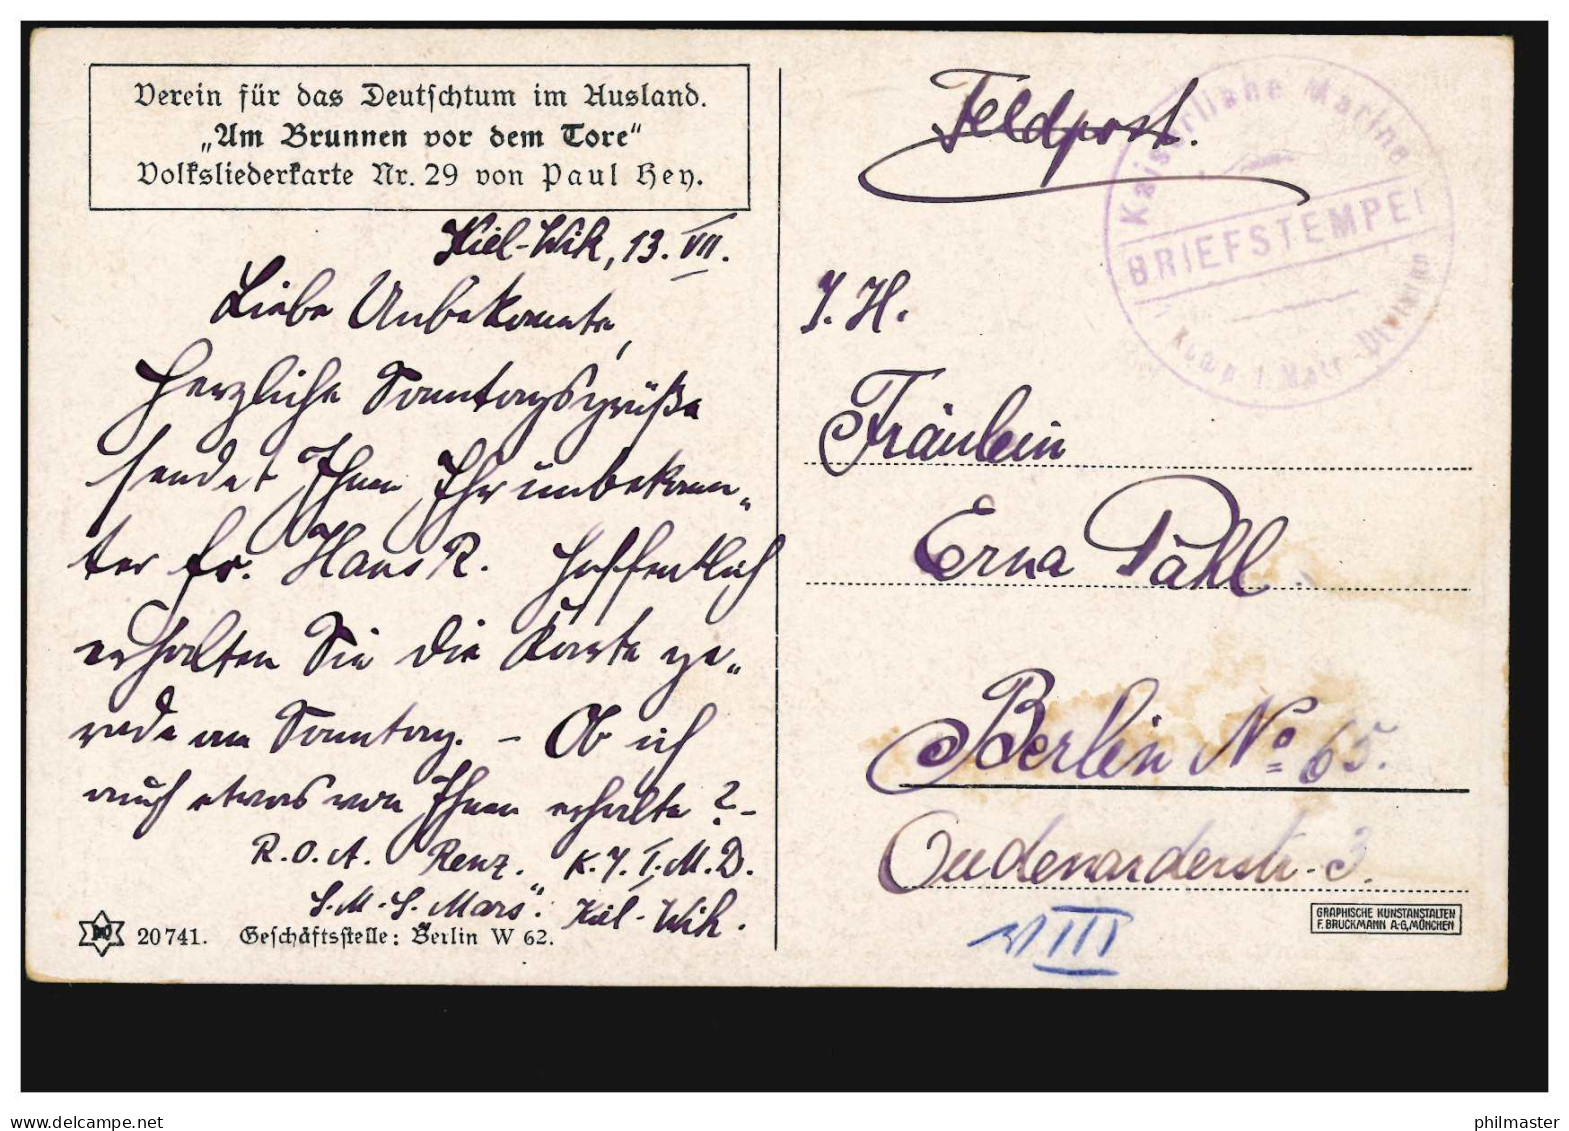 Verein für das Deutschtum im Ausland.
„Am Brunnen vor dem Tore"
Volksliederkarte Nr. 29 von Paul Hey.
Kiel-Wik, 13. VII.
Liebe Unbekannte,
Herzliche Sonntagsgrüße
sendet Ihnen Ihr unbekann„
ter Fr. Hans R. Hoffentlich
erhalten Sie die Karte ge„
rade am Sonntag. – Ob ich
auch etwas von Ihnen erhalte? –
R.O.A. Renz. K. I. M. D.
S.M.S. „Mars". Kiel-Wik.
20741. Geschäftsstelle: Berlin W 62.
Feldpost.
Kaiserliche Marine
BRIEFSTEMPEL
Komp. I. Matr.-Division
I. H.
Fräulein
Erna Pahl
Berlin No 65.
Oudenarderstr. 3.
VIII
GRAPHISCHE KUNSTANSTALTEN
F. BRUCKMANN A-G, MÜNCHEN
www.delcampe.net
philmaster